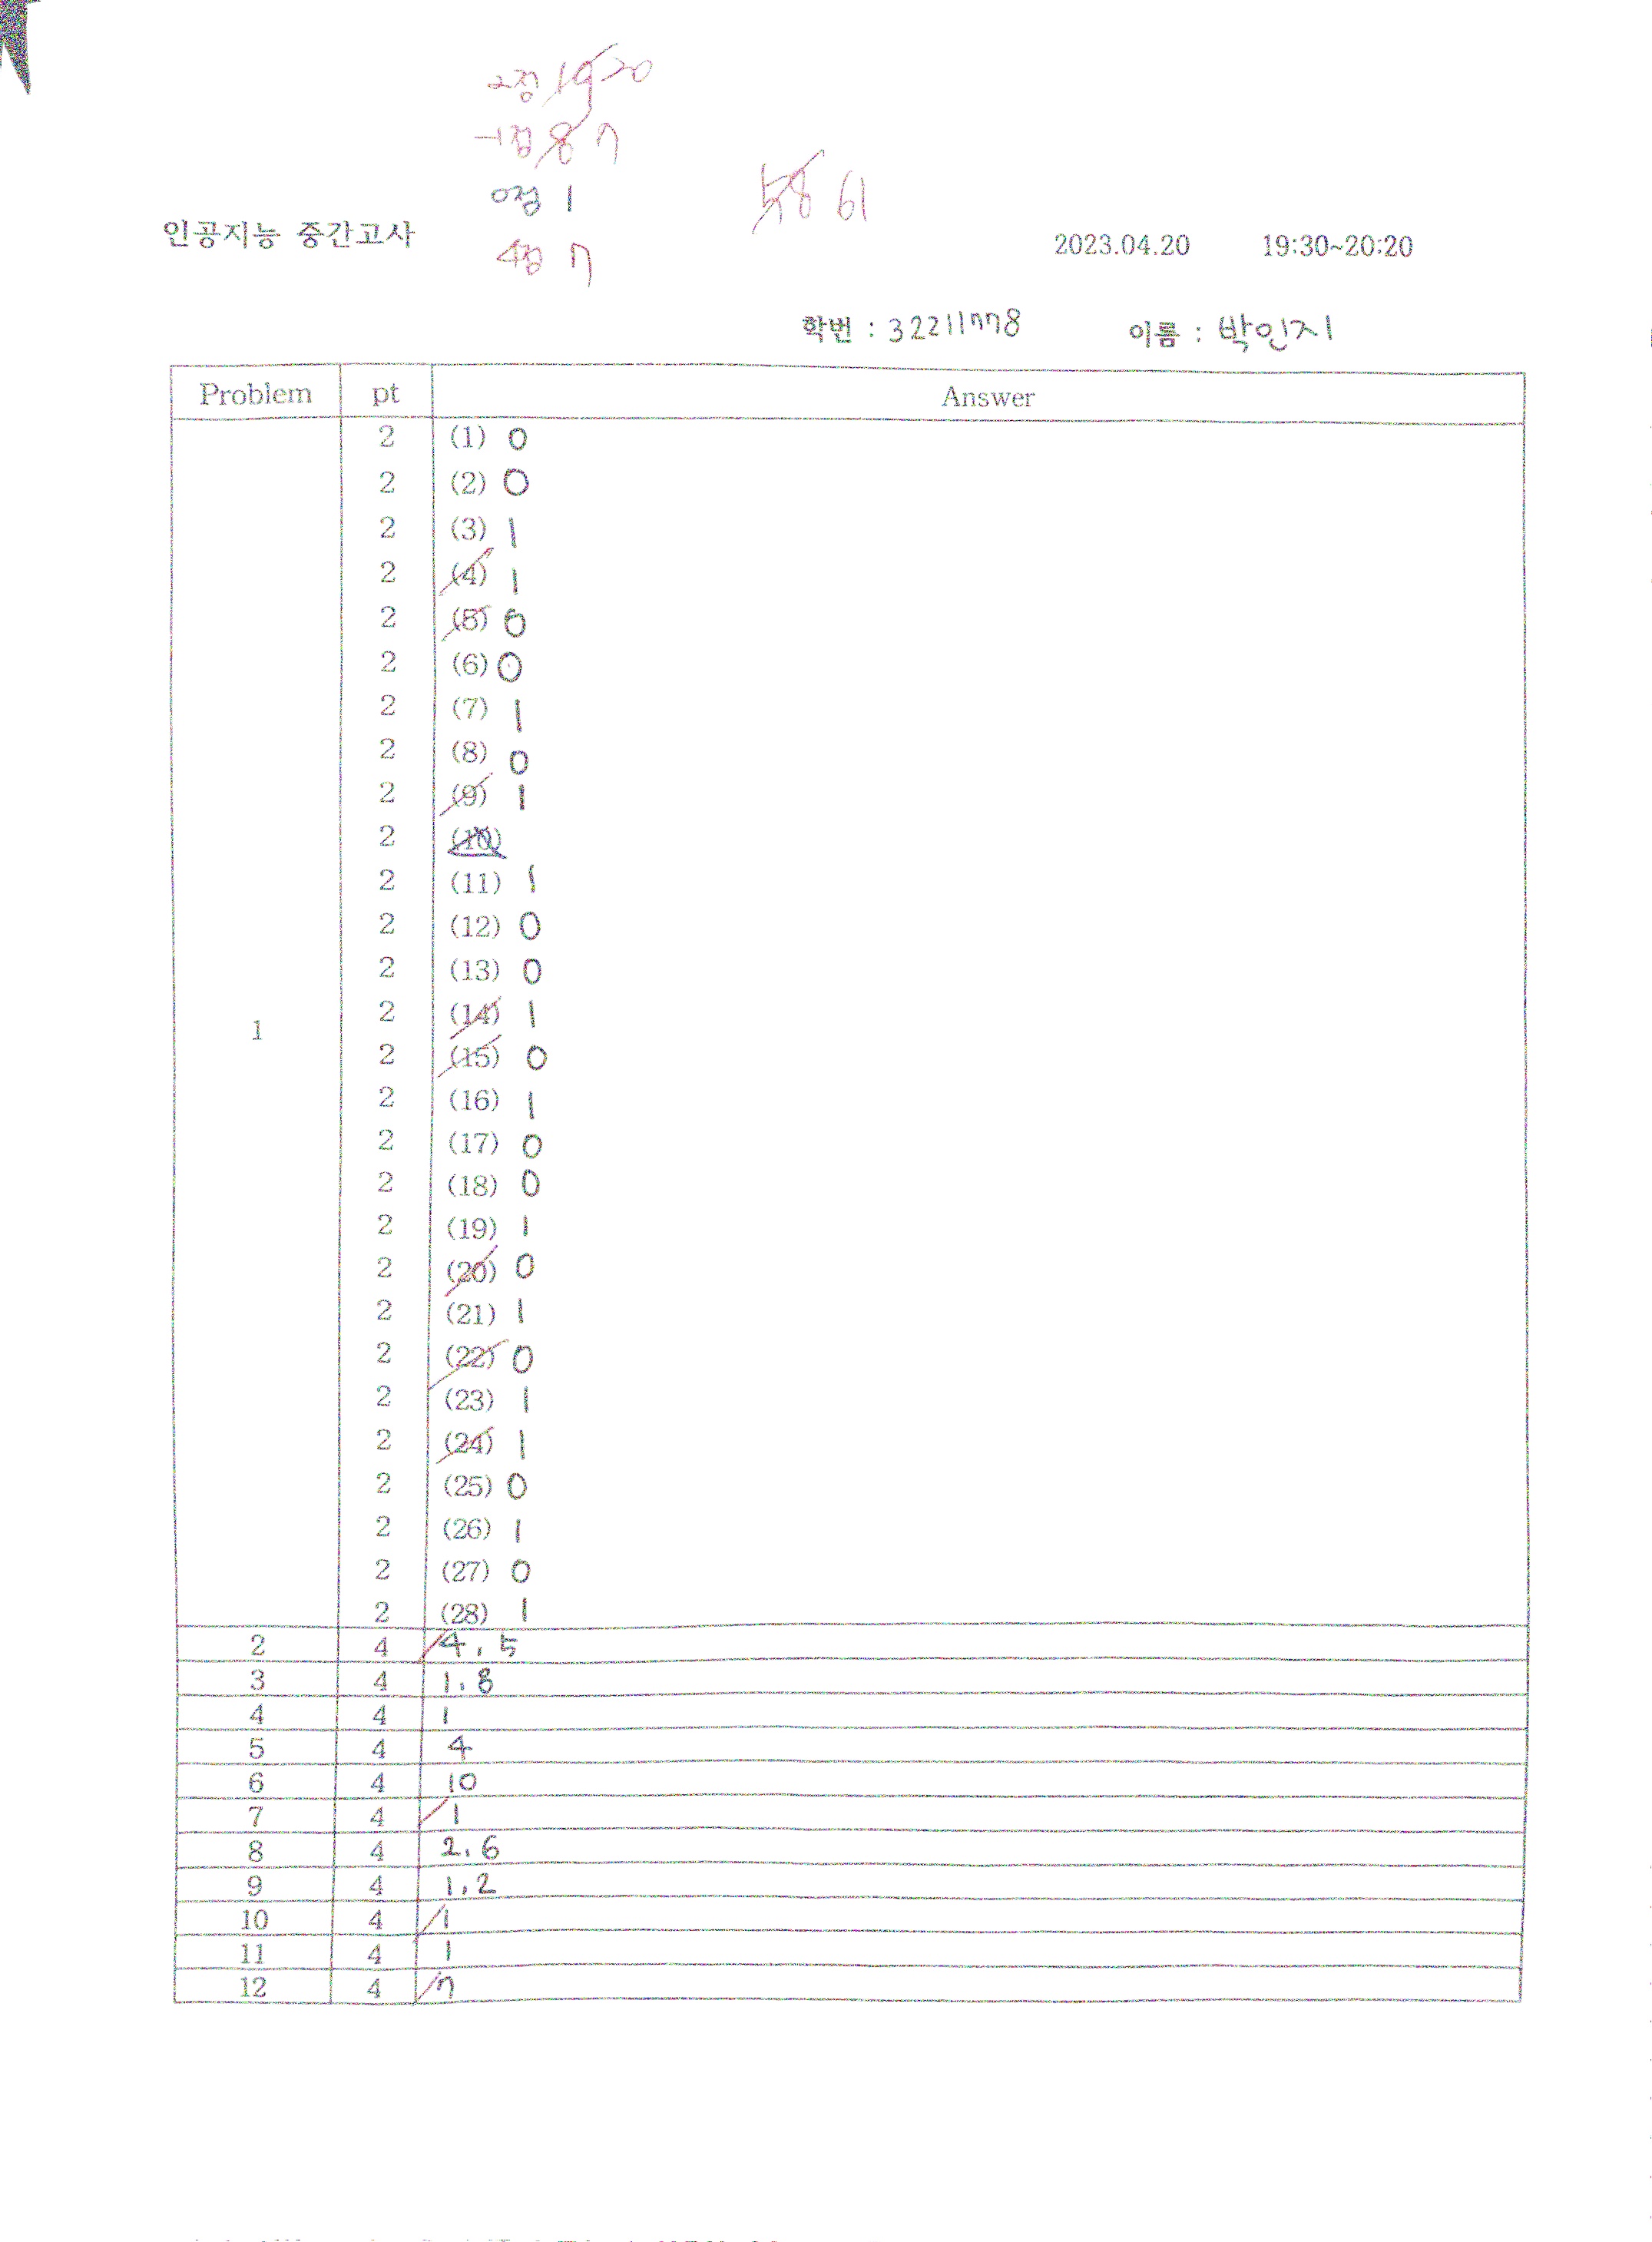 2점 19 20
-1점 8 7
0점 1
58 61
인공지능 중간고사
4점 7
2023.04.20 19:30~20:20
학번 : 32211778 이름 : 박인지
Problem pt Answer
2 (1) 0
2 (2) 0
2 (3) 1
2 (4) 1
2 (5) 0
2 (6) 0
2 (7) 1
2 (8) 0
2 (9) 1
2 (10)
2 (11) 1
2 (12) 0
2 (13) 0
2 (14) 1
1
2 (15) 0
2 (16) 1
2 (17) 0
2 (18) 0
2 (19) 1
2 (20) 0
2 (21) 1
2 (22) 0
2 (23) 1
2 (24) 1
2 (25) 0
2 (26) 1
2 (27) 0
2 (28) 1
2 4 4, 5
3 4 1, 8
4 4 1
5 4 4
6 4 10
7 4 1
8 4 2, 6
9 4 1, 2
10 4 1
11 4 1
12 4 7